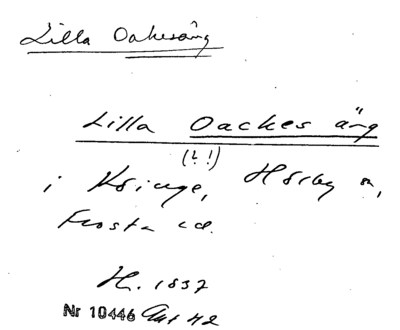 Lilla Oakesäng
Lilla Oackes äng
(? !)
i Kringe, Hörby sn,
Frosta hd.
H. 1837
Nr 10446 Akt 42